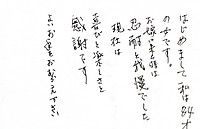 はじめまして私は84才
の女です
お嫁に来た時は
忍耐と我慢でした
現在は
喜びと楽しさと
感謝です
よいお年をお迎え下さい